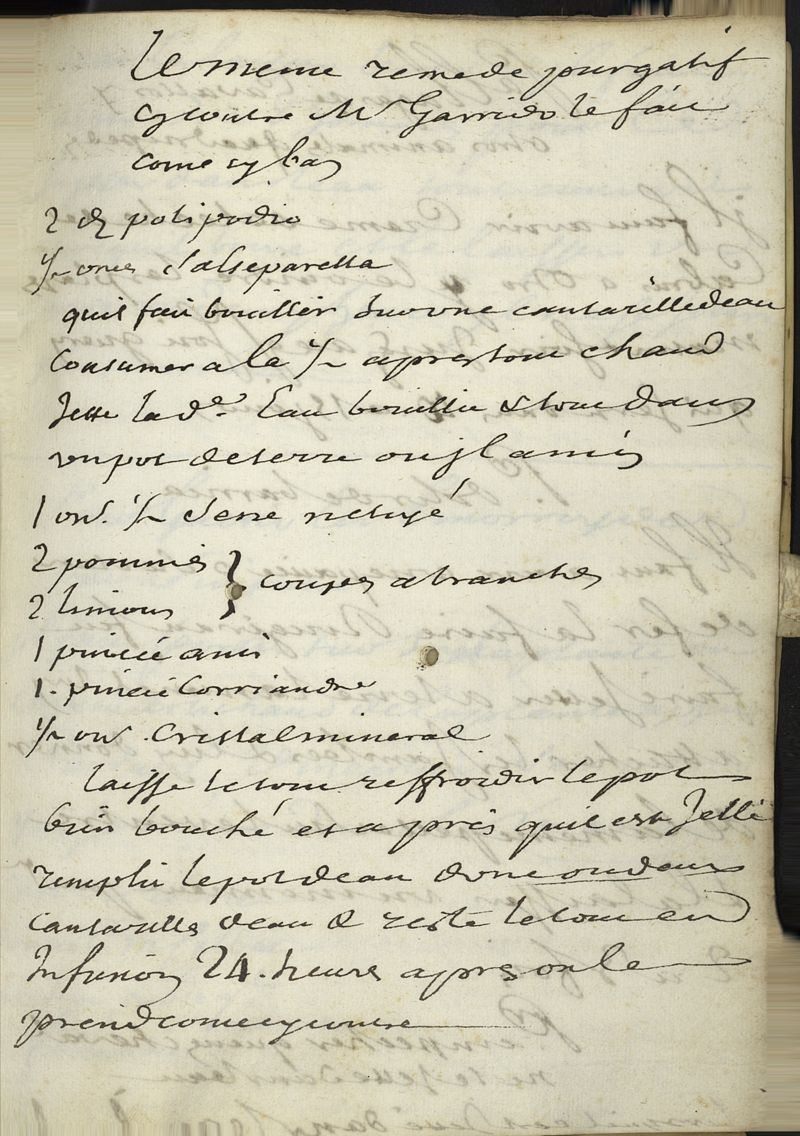 Le meme remede pourgatif
cy contre Mr Garrido le fait
come sy bas
2 d polipodio
½ once salseparella
quil fait bouillir sur une cantarelle deau
Consumer a la ½ apres tout chaud
Jette la de. Eau bouillie & tout dans
un pot de terre ou jl a mis
1 on. ½ Sene netuyé
2 pommes } coupes a tranches
2 limons
1 pincée anis
1. pincée Corriandre
½ on. Cristal mineral
laisse le tout reffroidir le pot
bien bouché et apres quil est Jetté
remplir le pot deau dune ou deux
cantarelles deau & reste le tout en
Infusion 24. heures apres on le
prend come cy contre